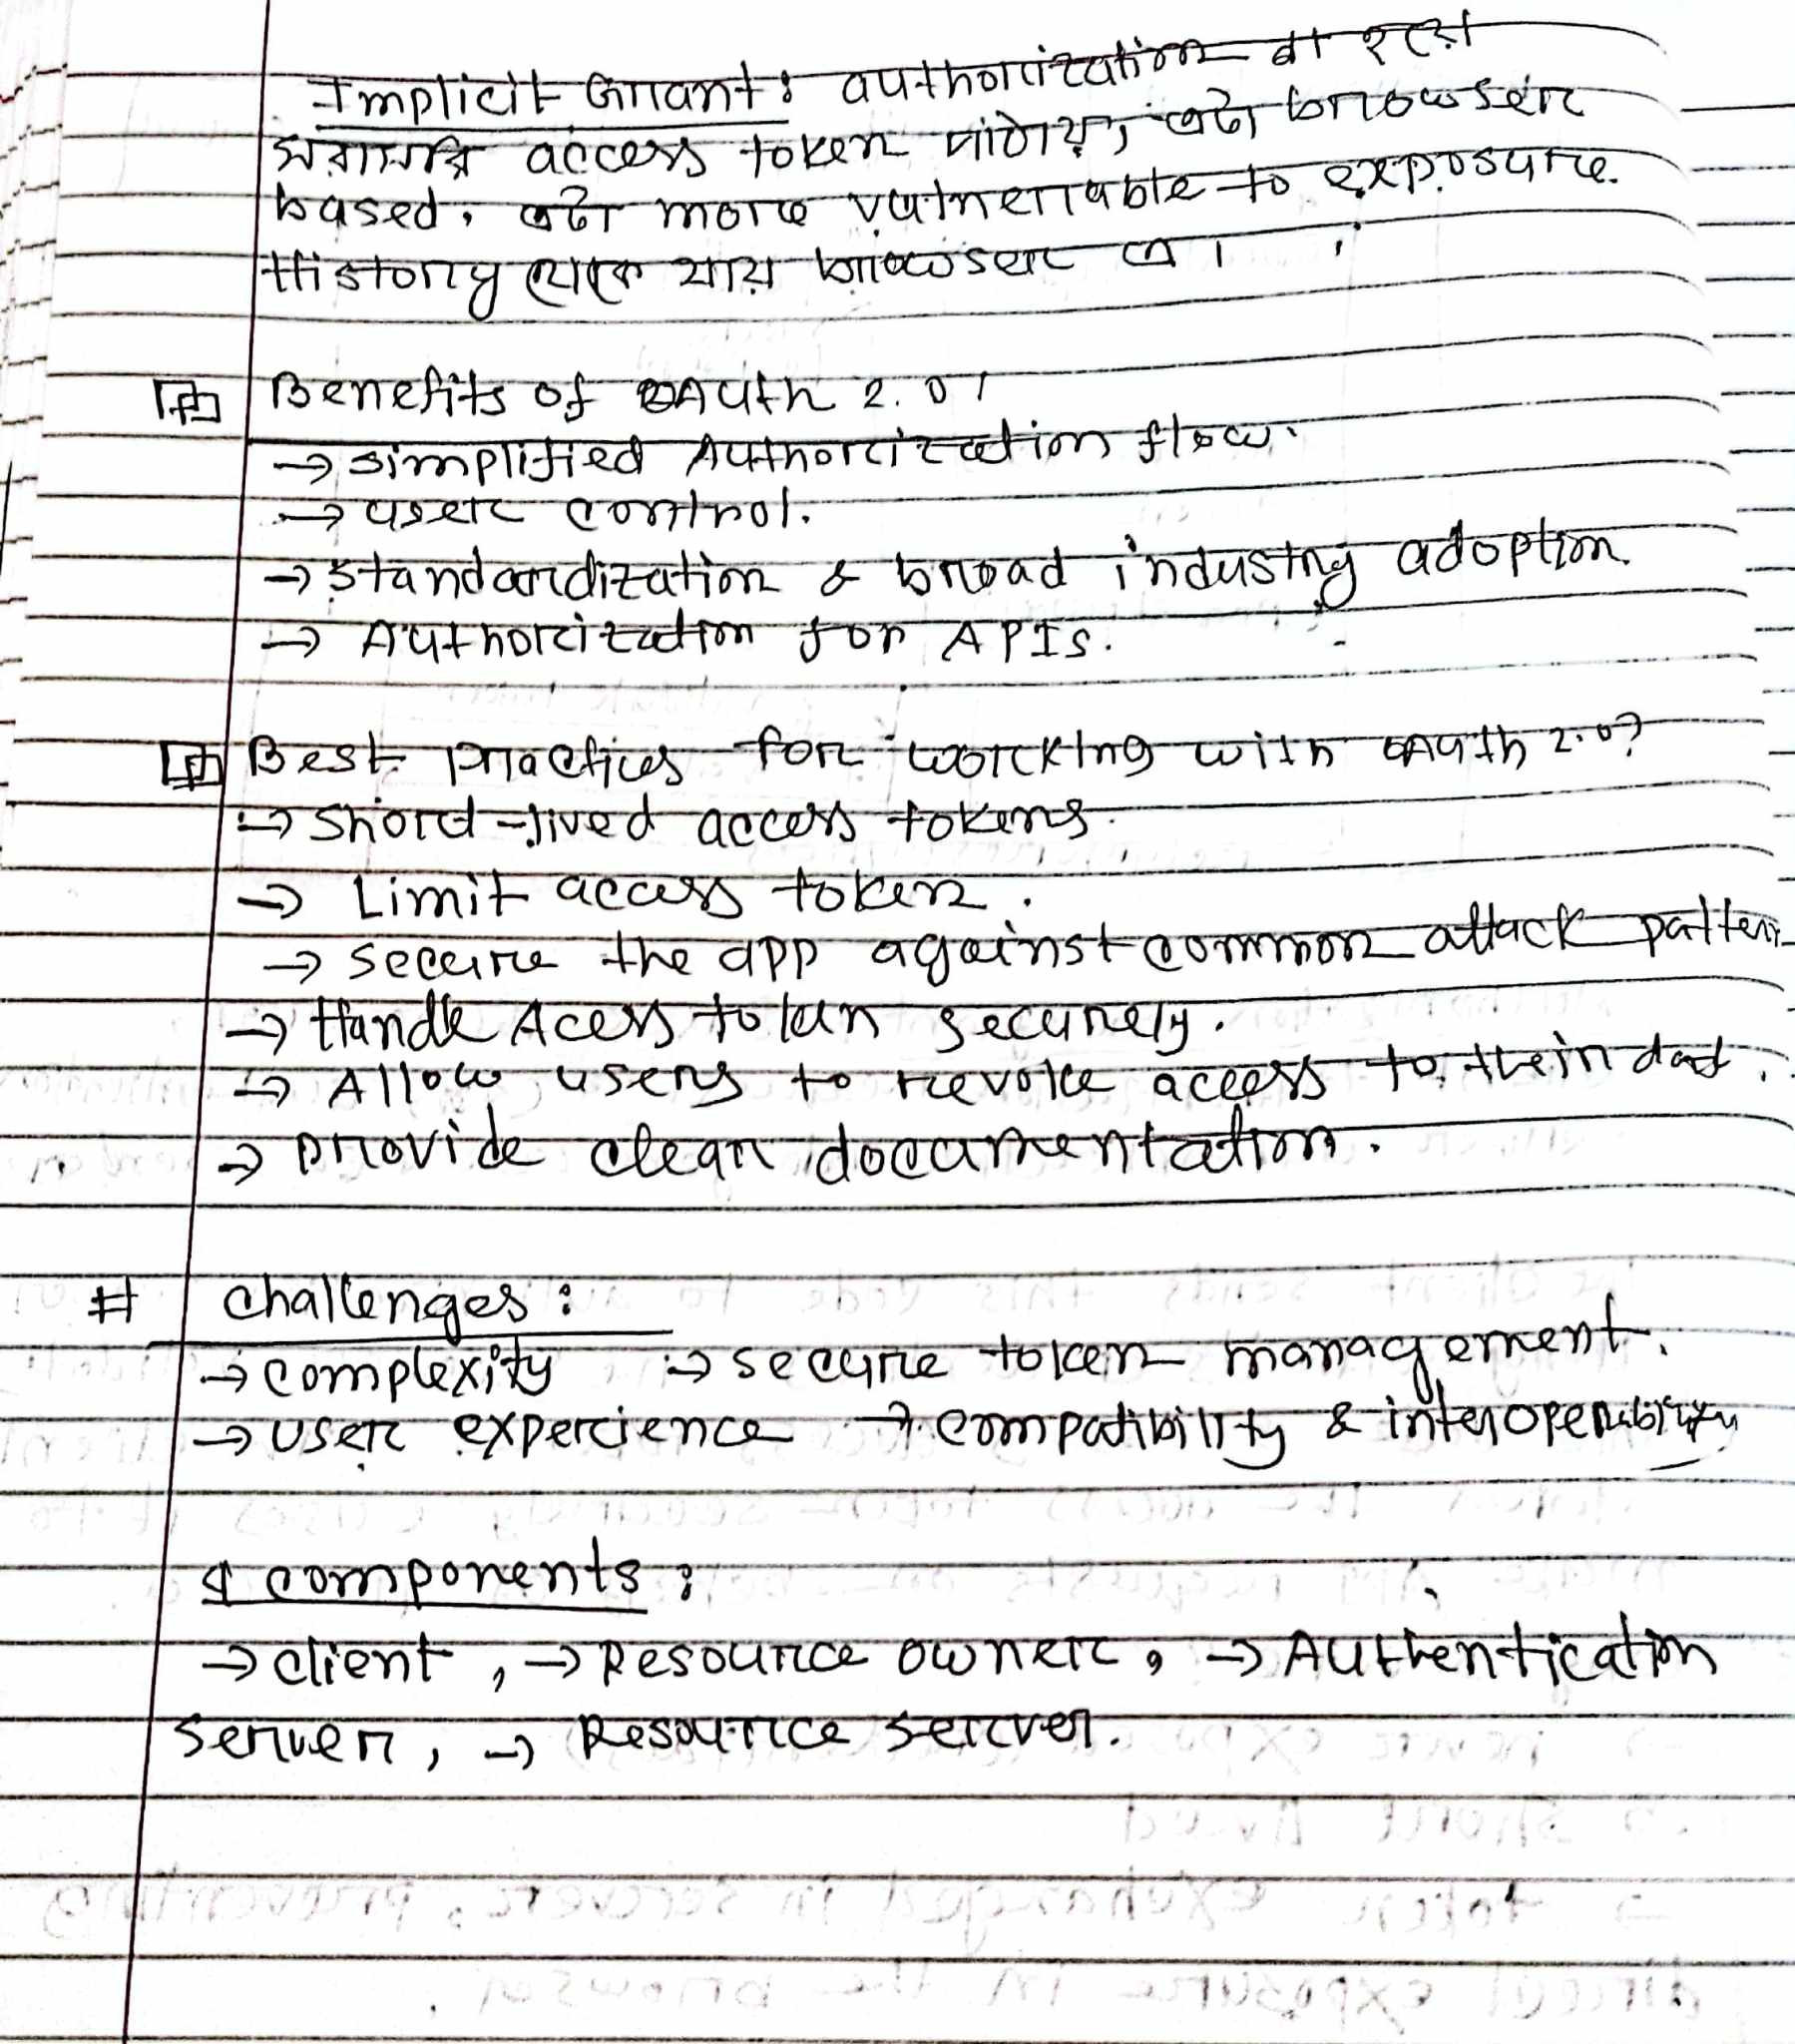 Implicit Grant: authorization না হয়ে
সরাসরি access token পাঠায়, এটা browser
based. এটা more vulnerable to exposure.
History থেকে যায় browser এ।
Benefits of OAuth 2.0!
→ simplified Authorization flow.
→ user control.
→ standardization & broad industry adoption
→ Authorization for APIs.
Best practices for working with OAuth 2.0?
→ short-lived access tokens.
→ Limit access token.
→ secure the app against common attack pattern
→ Handle Acess token securely.
→ Allow users to revoke access to their dat
→ provide clear documentation.
# challenges:
→ complexity → secure token management.
→ user experience → compatibility & interoperability
4 components:
→ client, → Resource owner, → Authentication
server, → Resource server.